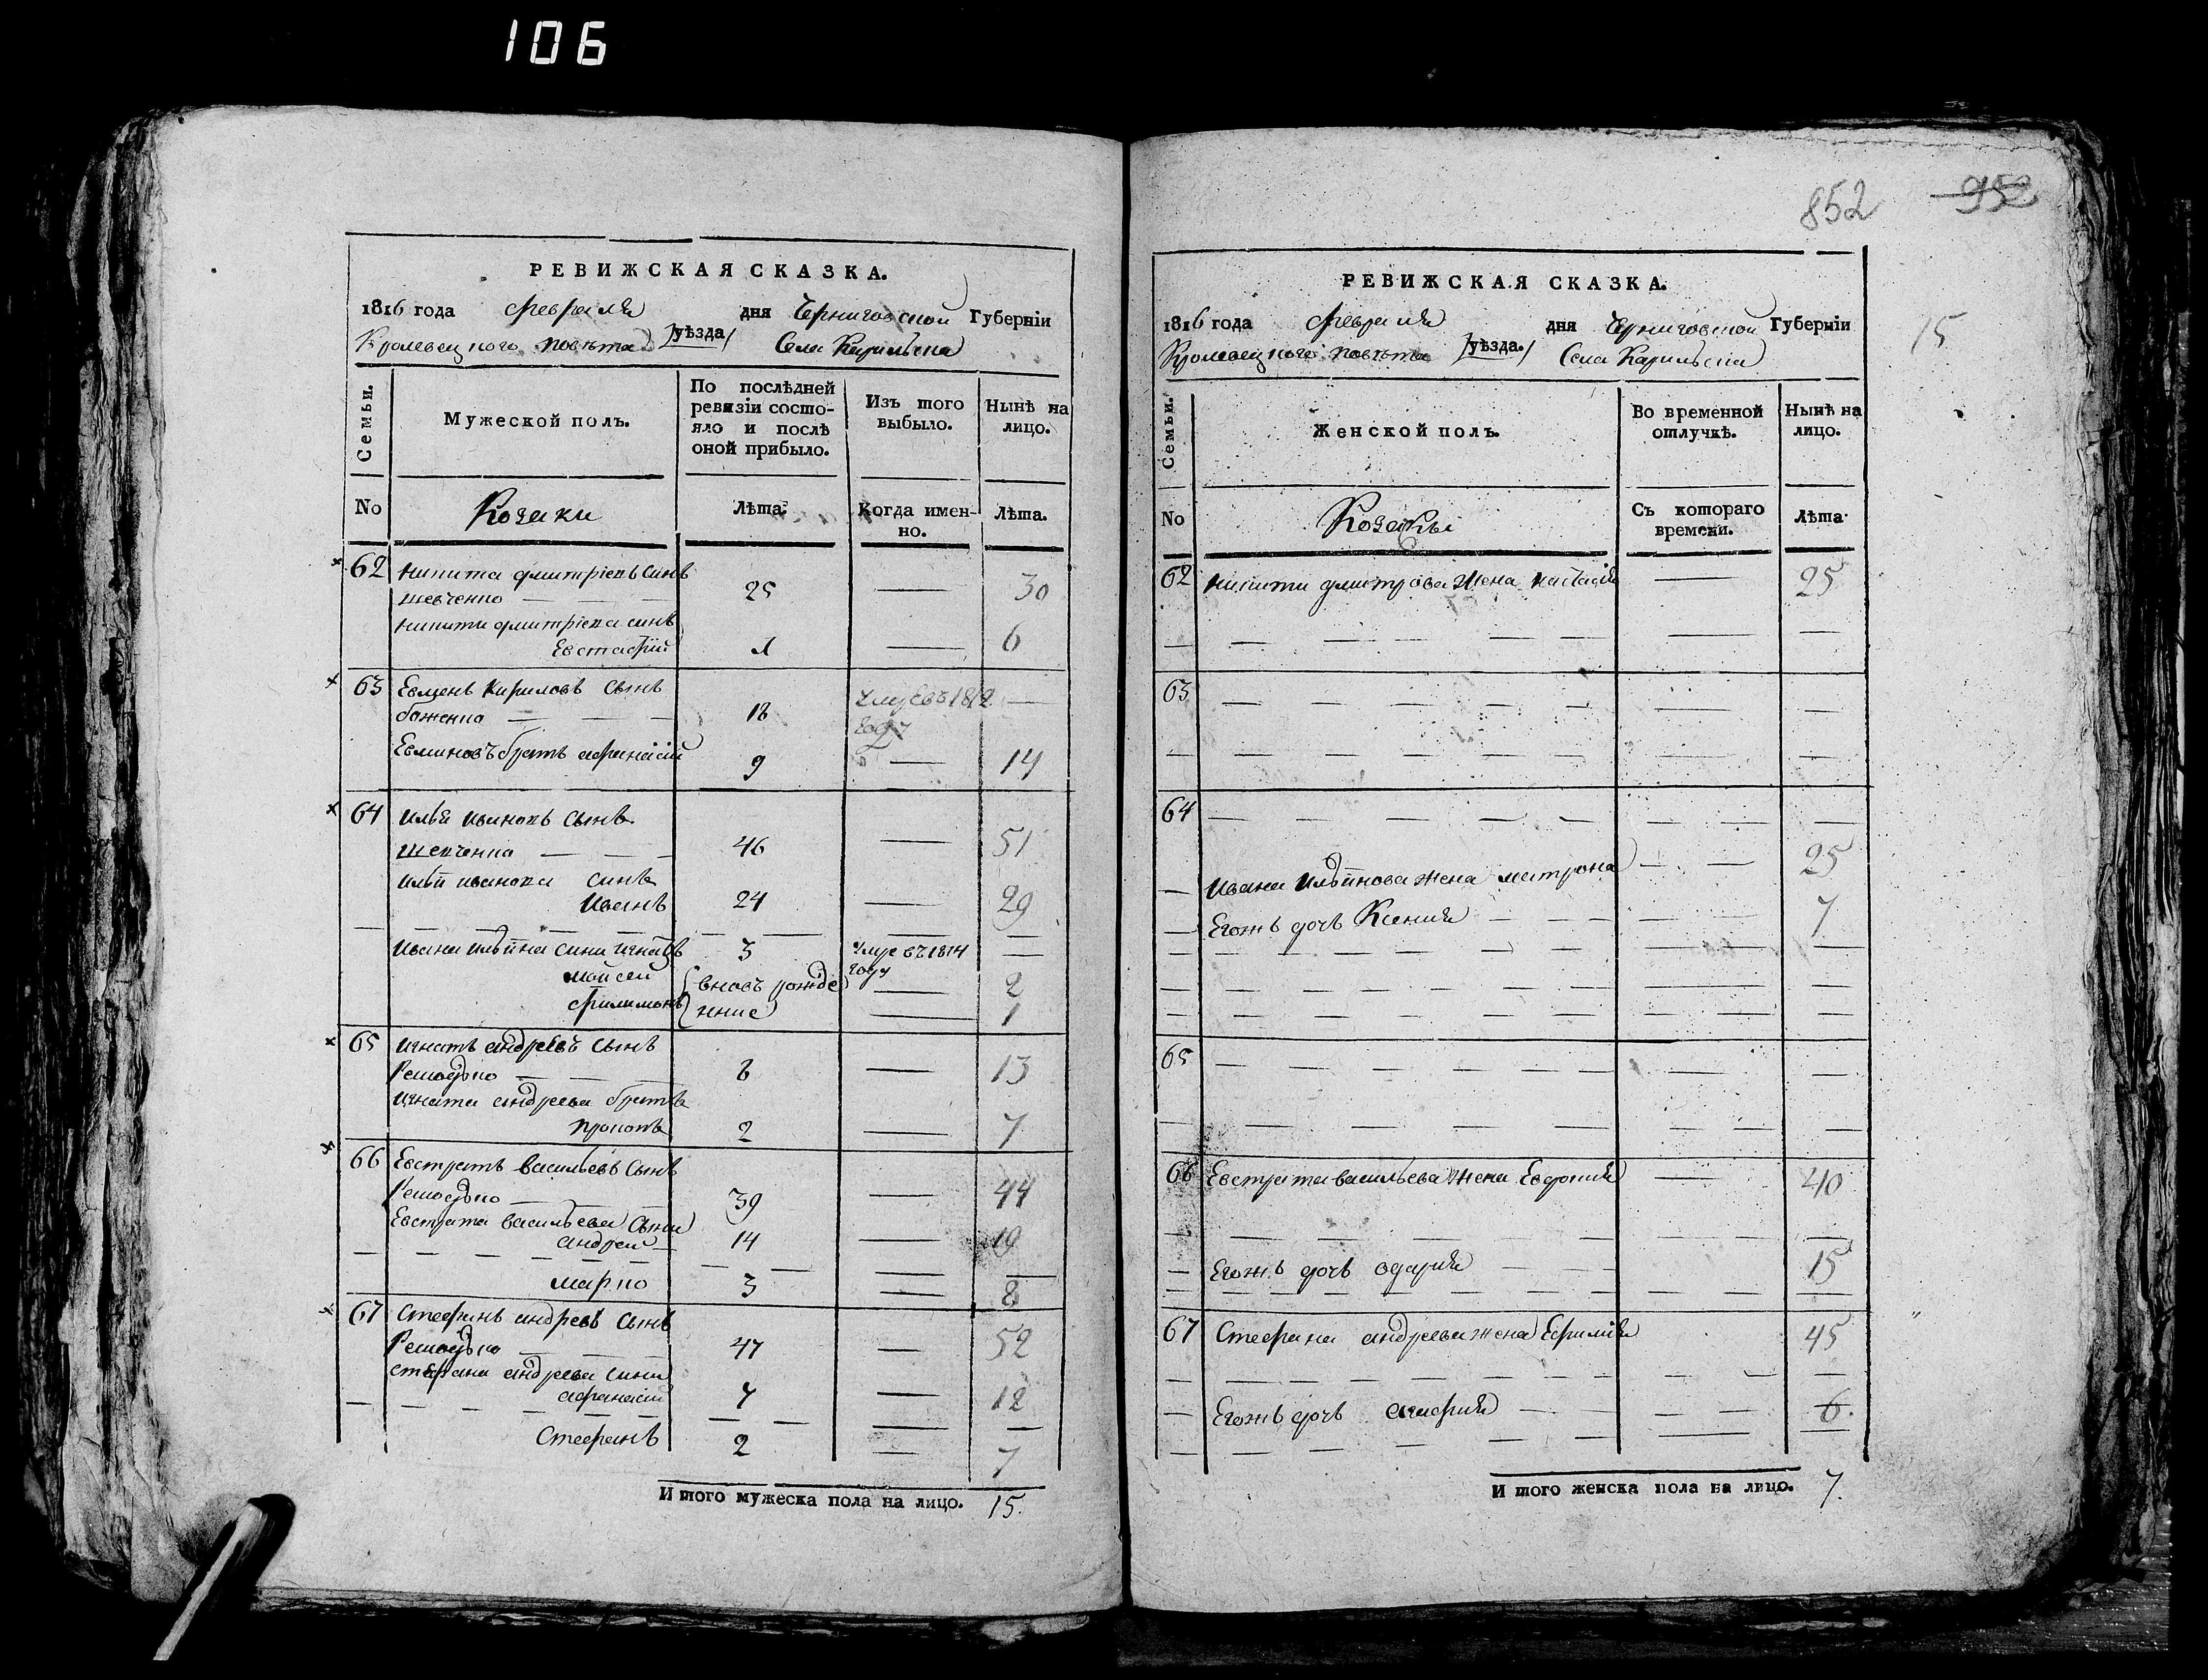 106
РЕВИЖСКАЯ СКАЗКА.
1816 года февраля дня Черниговской Губернїи
Кролевецкого повета уѣзда Села Карильска
Семьи.
Мужеской полъ.
По послѣдней ревизїи состояло и послѣ оной прибыло.
Изъ того выбыло.
Нынѣ на лицо.
No
Козаки
Лѣта.
Когда именно.
Лѣта.
62 Никита дмитрїевъ синъ
шевченко 25 30
никити дмитрїева синъ
Евстафїй 1 6
63 Евменъ Кириловъ сынъ
боженко 18 умре въ 1812
году
Евминовъ братъ афанасїй 9 14
64 Илья Ивановъ сынъ
шевченко 46 51
ильи иванова синъ
Иванъ 24 29
Ивана ильина сини игнатъ 3 умре въ 1814
году
мойсей вновъ рожде 2
филимонъ нние 1
65 Игнатъ андреевъ сынъ
8 13
Игната андреева братъ
прокопъ 2 7
66 Евстратъ васильевъ сынъ
39 44
Евстрата васильева сыни
андрей 14 19
марко 3 8
67 Стефанъ андреевъ сынъ
47 52
стефана андреева сини
афанасїй 7 12
Стефанъ 2 7
Итого мужеска пола на лицо. 15.
852 952
15
РЕВИЖСКАЯ СКАЗКА.
1816 года февраля дня Черниговской Губернїи
Кролевецкого повета уѣзда. Села Карильска
Семьи.
Женской полъ.
Во временной отлучкѣ.
Нынѣ на лицо.
No
Козачки
Съ котораго времени.
Лѣта
62 никити дмитрова жена настасїя 25
63
64
Ивана ильинова жена матрона 25
Егожъ дочь Ксения 7
65
66 Евстрата васильева жена Евдокия 40
Егожъ дочь одария 15
67 Стефана андреева жена Ефимїя 45
Егожъ дочь агафия 6.
Итого женска пола на лицо. 7.